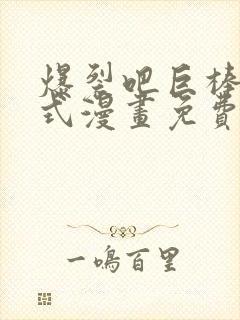 爆裂吧巨棒
式漫畫免費
一鳴百里